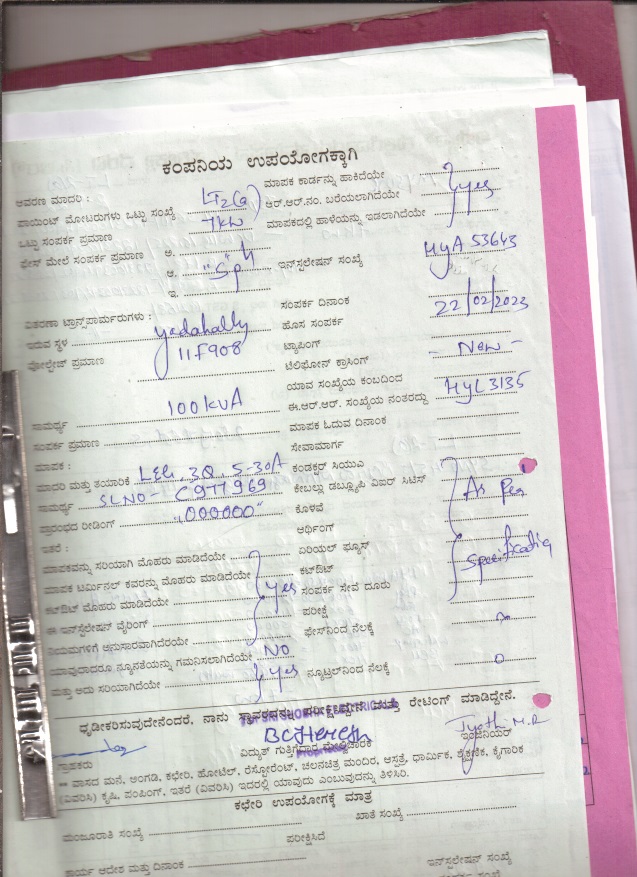 ಕಂಪನಿಯ ಉಪಯೋಗಕ್ಕಾಗಿ
ಆವರಣ ಮಾದರಿ : LT2(a) ಮಾಪಕ ಕಾರ್ಡನ್ನು ಹಾಕಿದೆಯೇ
ಪಾಯಿಂಟ್ ಮೋಟರುಗಳು ಒಟ್ಟು ಸಂಖ್ಯೆ 7kw ಆರ್.ಆರ್.ನಂ. ಬರೆಯಲಾಗಿದೆಯೇ yes
ಒಟ್ಟು ಸಂಪರ್ಕ ಪ್ರಮಾಣ ಮಾಪಕದಲ್ಲಿ ಹಾಳೆಯನ್ನು ಇಡಲಾಗಿದೆಯೇ
ಫೇಸ್ ಮೇಲೆ ಸಂಪರ್ಕ ಪ್ರಮಾಣ ಅ.
ಆ. "Sph" ಇನ್‌ಸ್ಟಲೇಷನ್ ಸಂಖ್ಯೆ HYA 53643
ಇ.
ಸಂಪರ್ಕ ದಿನಾಂಕ 22/02/2023
ವಿತರಣಾ ಟ್ರಾನ್ಸ್‌ಫಾರ್ಮರುಗಳು : ಹೊಸ ಸಂಪರ್ಕ
ಇರುವ ಸ್ಥಳ yadahally ಟ್ಯಾಪಿಂಗ್ - New -
ವೋಲ್ಟೇಜ್ ಪ್ರಮಾಣ 11F908 ಟೆಲಿಫೋನ್ ಕ್ರಾಸಿಂಗ್
ಯಾವ ಸಂಖ್ಯೆಯ ಕಂಬದಿಂದ
100kVA ಈ.ಆರ್.ಆರ್. ಸಂಖ್ಯೆಯ ನಂತರದ್ದು HYL 3135
ಸಾಮರ್ಥ್ಯ ಮಾಪಕ ಓದುವ ದಿನಾಂಕ
ಸಂಪರ್ಕ ಪ್ರಮಾಣ ಸೇವಾಮಾರ್ಗ
ಮಾಪಕ : ಕಂಡಕ್ಟರ್ ಸಿಯುವಿ
ಮಾದರಿ ಮತ್ತು ತಯಾರಿಕೆ L&G, 3Q, 5-30A ಕೇಬಲ್ಲು ಡಬ್ಲ್ಯೂಪಿ ವಿಐರ್ ಸಿಟಿಸ್
ಸಾಮರ್ಥ್ಯ SLNO- C977969 ಕೊಳವೆ As Per
ಪ್ರಾರಂಭದ ರೀಡಿಂಗ್ "000000" ಅರ್ಥಿಂಗ್
ಇತರೆ : ಏರಿಯಲ್ ಫ್ಯೂಸ್
ಮಾಪಕವನ್ನು ಸರಿಯಾಗಿ ಮೊಹರು ಮಾಡಿದೆಯೇ ಕಟ್‌ಔಟ್
ಮಾಪಕ ಟರ್ಮಿನಲ್ ಕವರನ್ನು ಮೊಹರು ಮಾಡಿದೆಯೇ yes ಸಂಪರ್ಕ ಸೇವೆ ದೂರು
ಕಟ್‌ಔಟ್ ಮೊಹರು ಮಾಡಿದೆಯೇ ಪರೀಕ್ಷೆ
ಈ ಇನ್‌ಸ್ಟಲೇಷನ್ ವೈರಿಂಗ್ ಫೇಸ್‌ನಿಂದ ನೆಲಕ್ಕೆ
ನಿಯಮಗಳಿಗೆ ಅನುಸಾರವಾಗಿದೆರಯೇ
ಯಾವುದಾದರೂ ನ್ಯೂನತೆಯನ್ನು ಗಮನಿಸಲಾಗಿದೆಯೇ NO ನ್ಯೂಟ್ರಲ್‌ನಿಂದ ನೆಲಕ್ಕೆ 0
ಮತ್ತು ಅದು ಸರಿಯಾಗಿದೆಯೇ yes
ಧೃಡೀಕರಿಸುವುದೇನೆಂದರೆ, ನಾನು ಸ್ಥಾವರವನ್ನು ಪರೀಕ್ಷಿದ್ದೇನೆ ಮತ್ತು ರೇಟಿಂಗ್ ಮಾಡಿದ್ದೇನೆ.
Jyothi M.R
ಗ್ರಾಹಕರು ವಿದ್ಯುತ್ ಗುತ್ತಿಗೆದಾರ ಮೇಲ್ವಿಚಾರಕ ಇಂಜಿನಿಯರ್
** ವಾಸದ ಮನೆ, ಅಂಗಡಿ, ಕಛೇರಿ, ಹೋಟೆಲ್, ರೆಸ್ಟೋರೆಂಟ್, ಚಲನಚಿತ್ರ ಮಂದಿರ, ಆಸ್ಪತ್ರೆ, ಧಾರ್ಮಿಕ, ಶೈಕ್ಷಣಿಕ, ಕೈಗಾರಿಕೆ
(ವಿವರಿಸಿ) ಕೃಷಿ, ಪಂಪಿಂಗ್, ಇತರೆ (ವಿವರಿಸಿ) ಇದರಲ್ಲಿ ಯಾವುದು ಎಂಬುವುದನ್ನು ತಿಳಿಸಿರಿ.
ಕಛೇರಿ ಉಪಯೋಗಕ್ಕೆ ಮಾತ್ರ
ಮಂಜೂರಾತಿ ಸಂಖ್ಯೆ ಖಾತೆ ಸಂಖ್ಯೆ
ಪರೀಕ್ಷಿಸಿದೆ
ಕಾರ್ಯ ಆದೇಶ ಮತ್ತು ದಿನಾಂಕ ಇನ್‌ಸ್ಟಲೇಷನ್ ಸಂಖ್ಯೆ